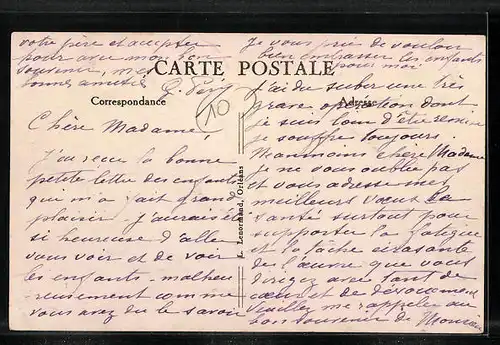 CARTE POSTALE
Correspondance
Adresse
L. Lenormand, Orléans
10
Chère Madame,
J'ai reçu la bonne
petite lettre des enfants
qui m'a fait grand
plaisir. J'aurais été
si heureuse d'aller
vous voir et de voir
les enfants - malheu
-reusement comme
vous avez du le savoir
j'ai du subir une très
grave opération dont
je suis loin d'être remise
je souffre toujours.
Néanmoins chère Madame
je ne vous oublie pas
et vous adresse mes
meilleurs vœux de
santé surtout pour
supporter la fatigue
et la tâche écrasante
de l'œuvre que vous
dirigez avec tant de
cœur et de dévouement
Veuillez me rappeler au
bon souvenir de Monsieur
votre père et accepter
pour avec mon bon
souvenir, mes
bonnes amitiés
Je vous prie de vouloir
bien embrasser les enfants
pour moi